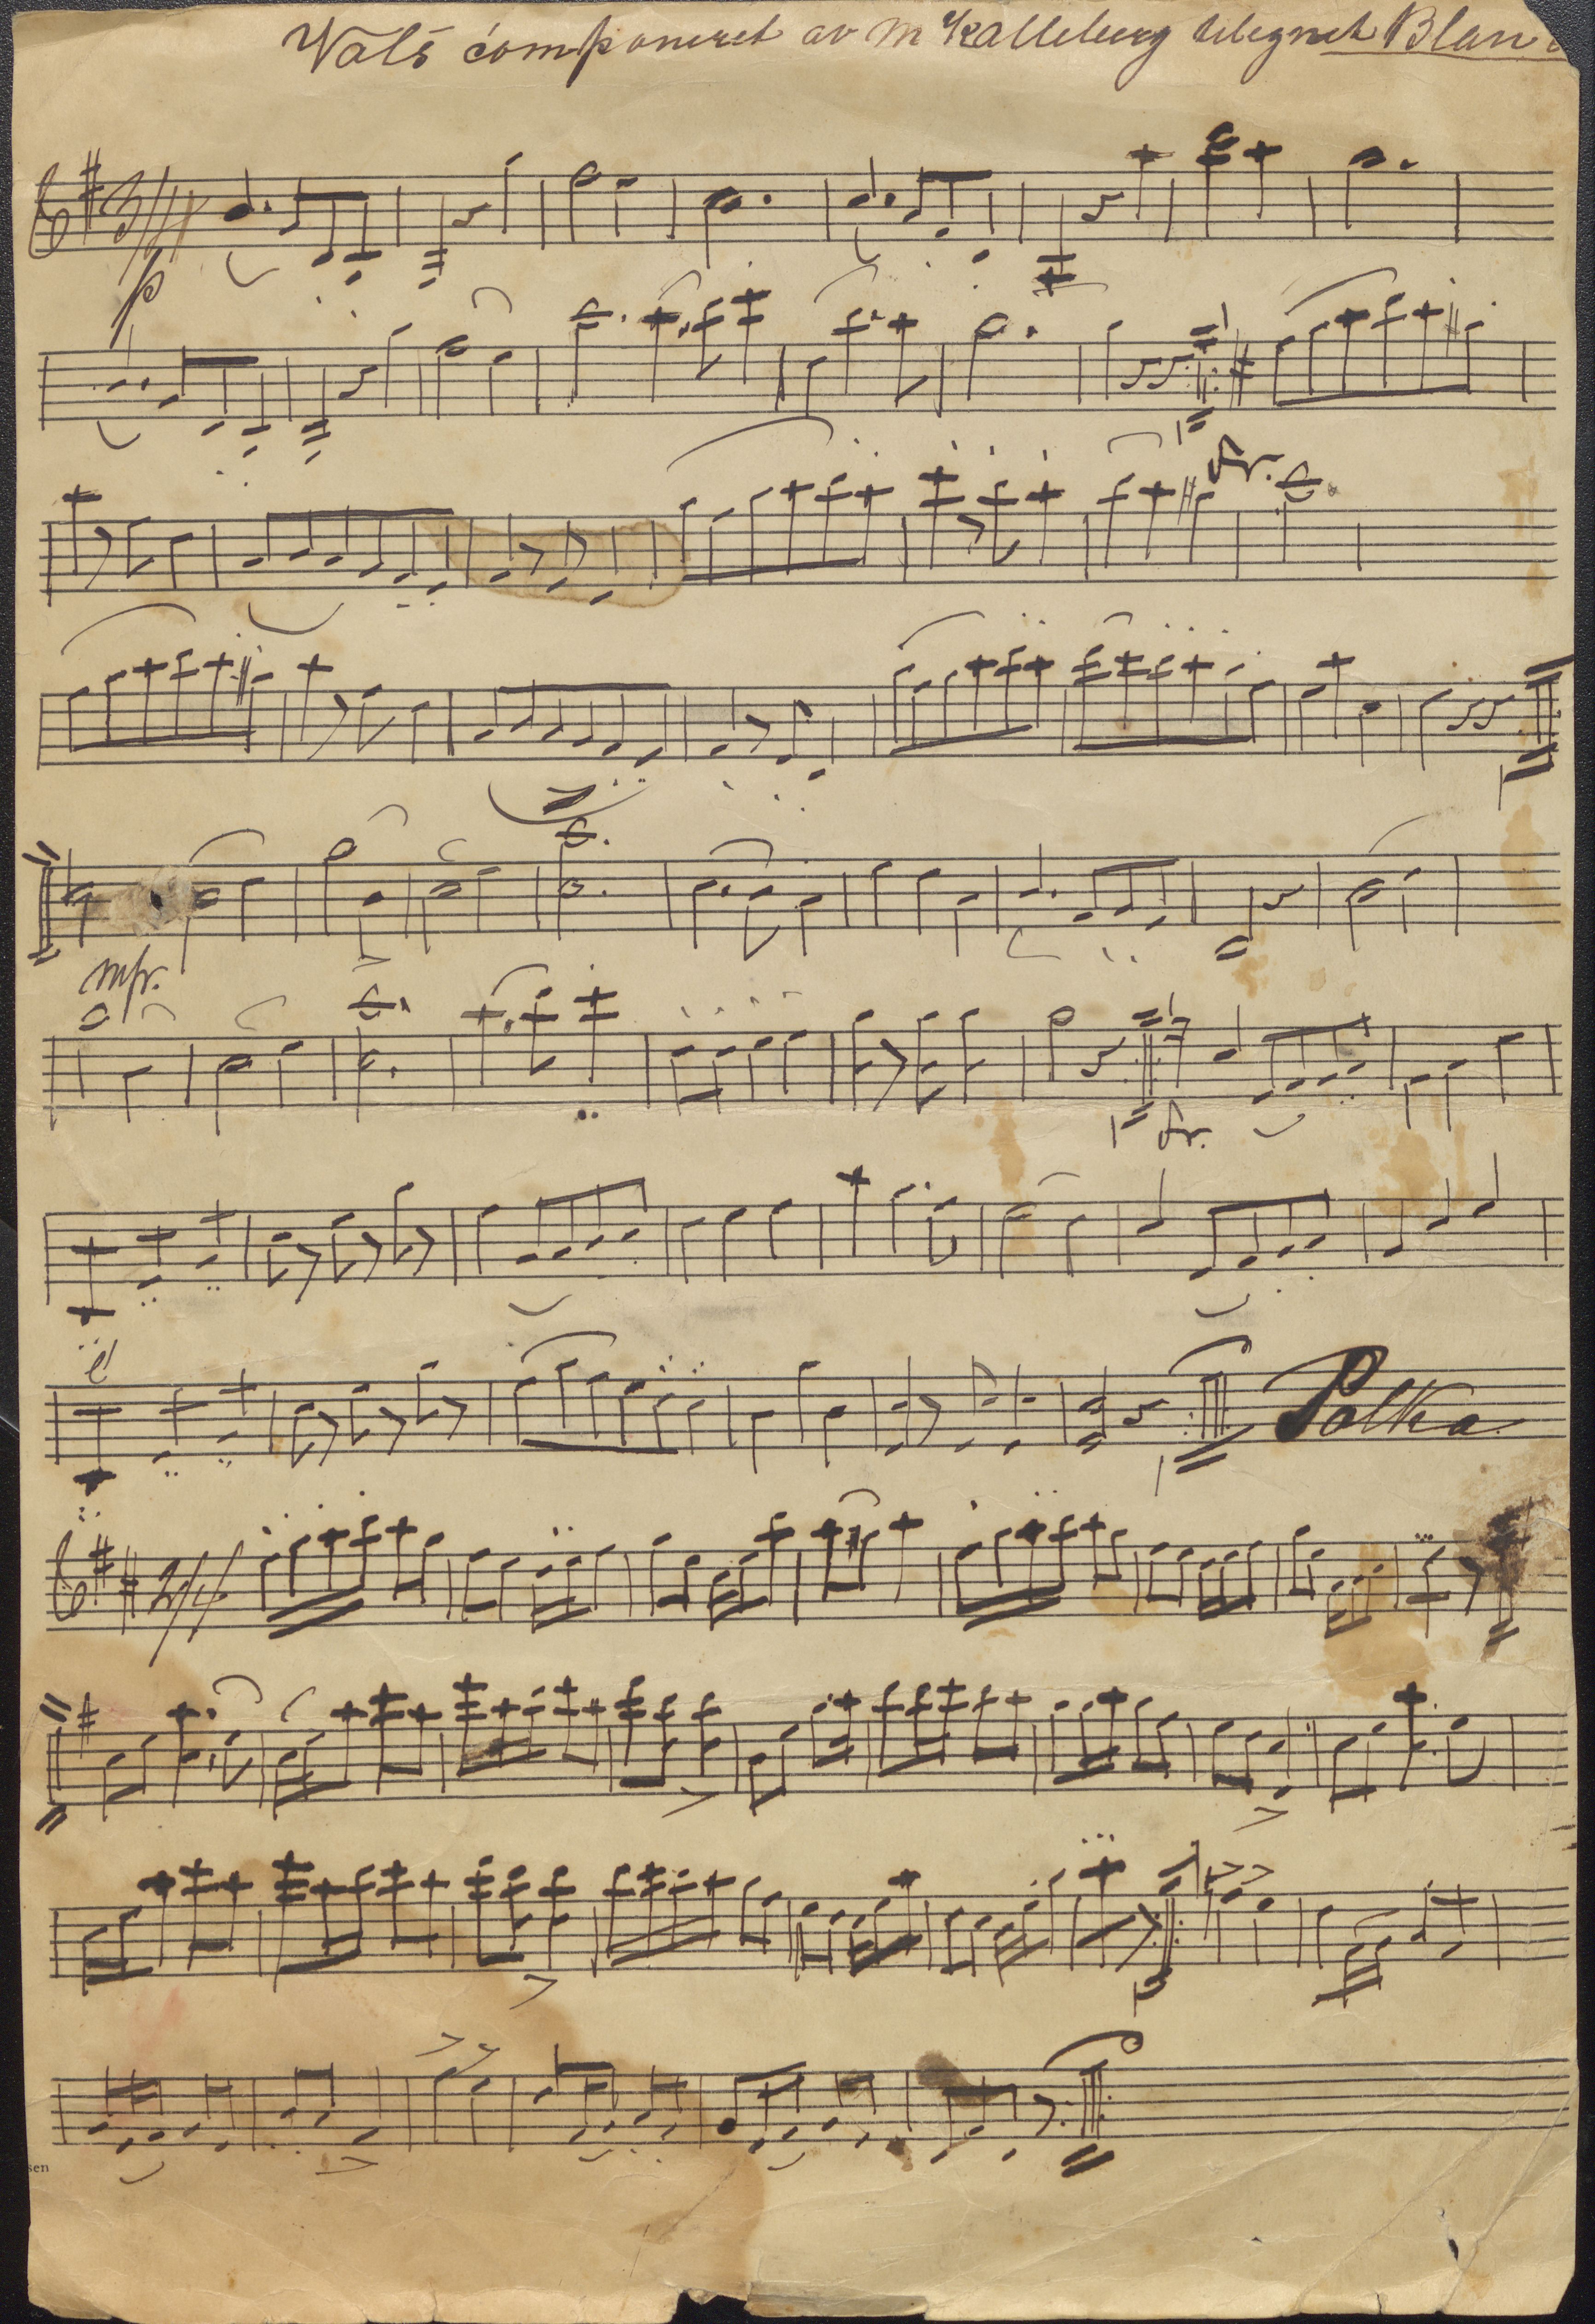 Vals componeret av M Kalleberg tilegnet Blan
3/4
p
fr.
mfr.
fr.
Polka
2/4
sen